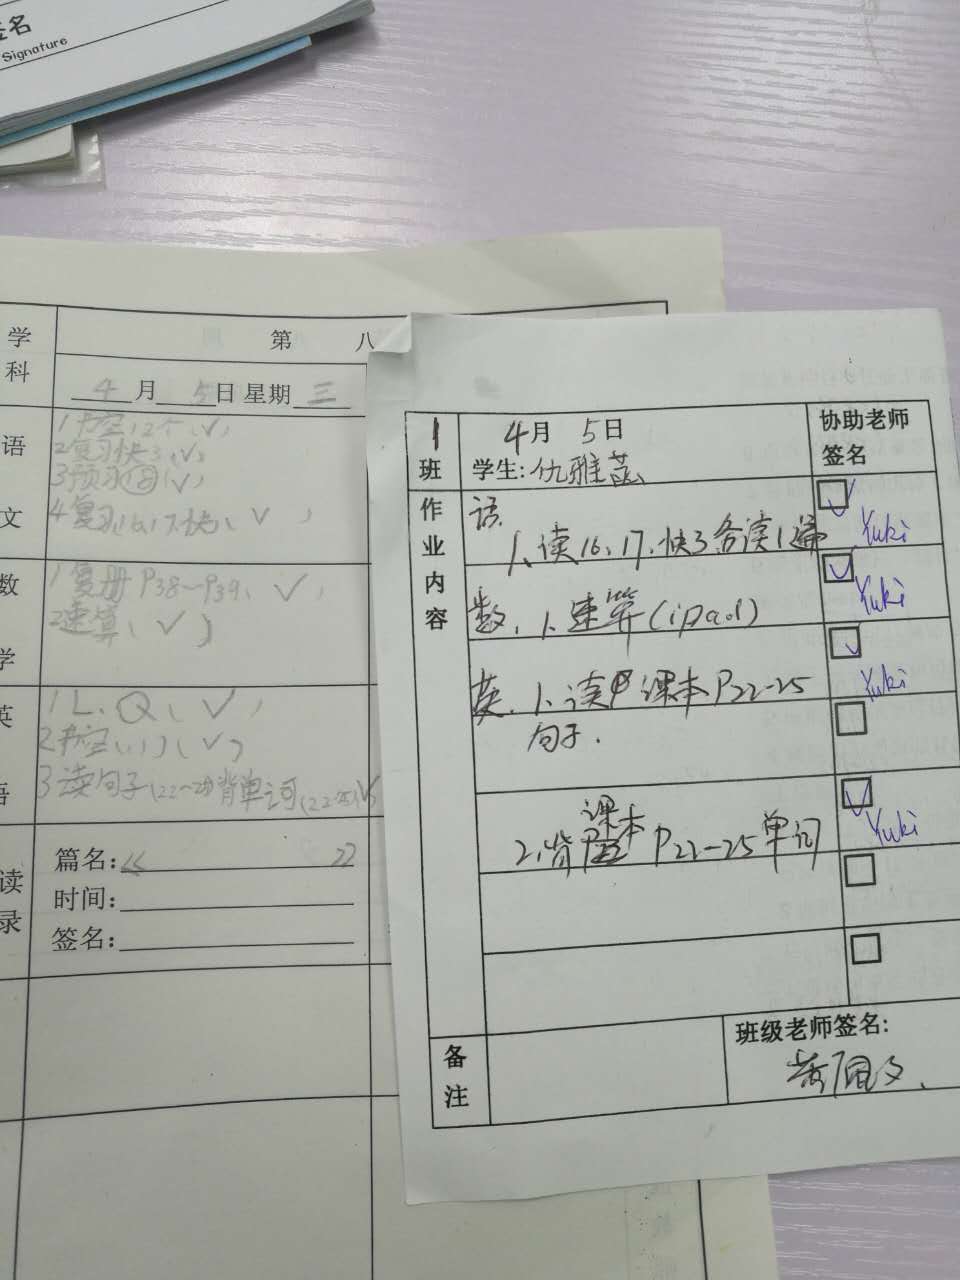 签名
Signature
学科
第 八
4月 5日 星期 三
语文
1书空12个、√,
2复习快3、√,
3预习⑧、√,
4复习16,17,快、√,
数学
1复册P38~P39、√,
2速算、√,
英语
1L.Q、√,
2书空(1,1)、√,
3读句子(22~25)背单词(22-25)、√
读录
篇名:《 》
时间:
签名:
1班
4月 5日
学生:仇雅菡
协助老师签名
作业内容
语.
1、读16、17、快3各读1遍
Yuki
数、1、速算(ipad)
Yuki
英、1、读 课本P22-25
句子.
Yuki
课本
2、背 P22-25单词
Yuki
备注
班级老师签名: